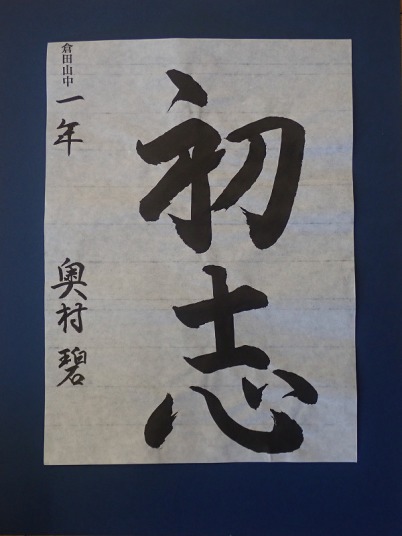 初志
倉田山中 一年 奥村 碧